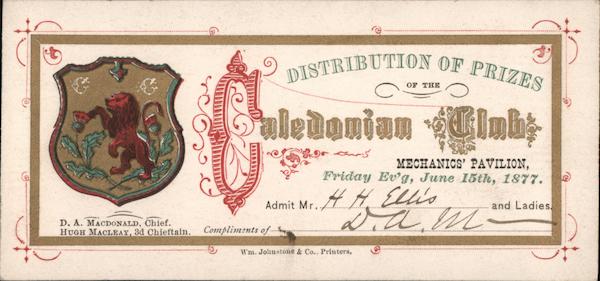 DISTRIBUTION OF PRIZES
OF THE
Caledonian Club
MECHANICS' PAVILION,
Friday Ev'g, June 15th, 1877.
Admit Mr. H H Ellis and Ladies.
D. A. MACDONALD, Chief.
HUGH MACLEAY, 3d Chieftain.
Compliments of D. A. M
Wm. Johnstone & Co., Printers.